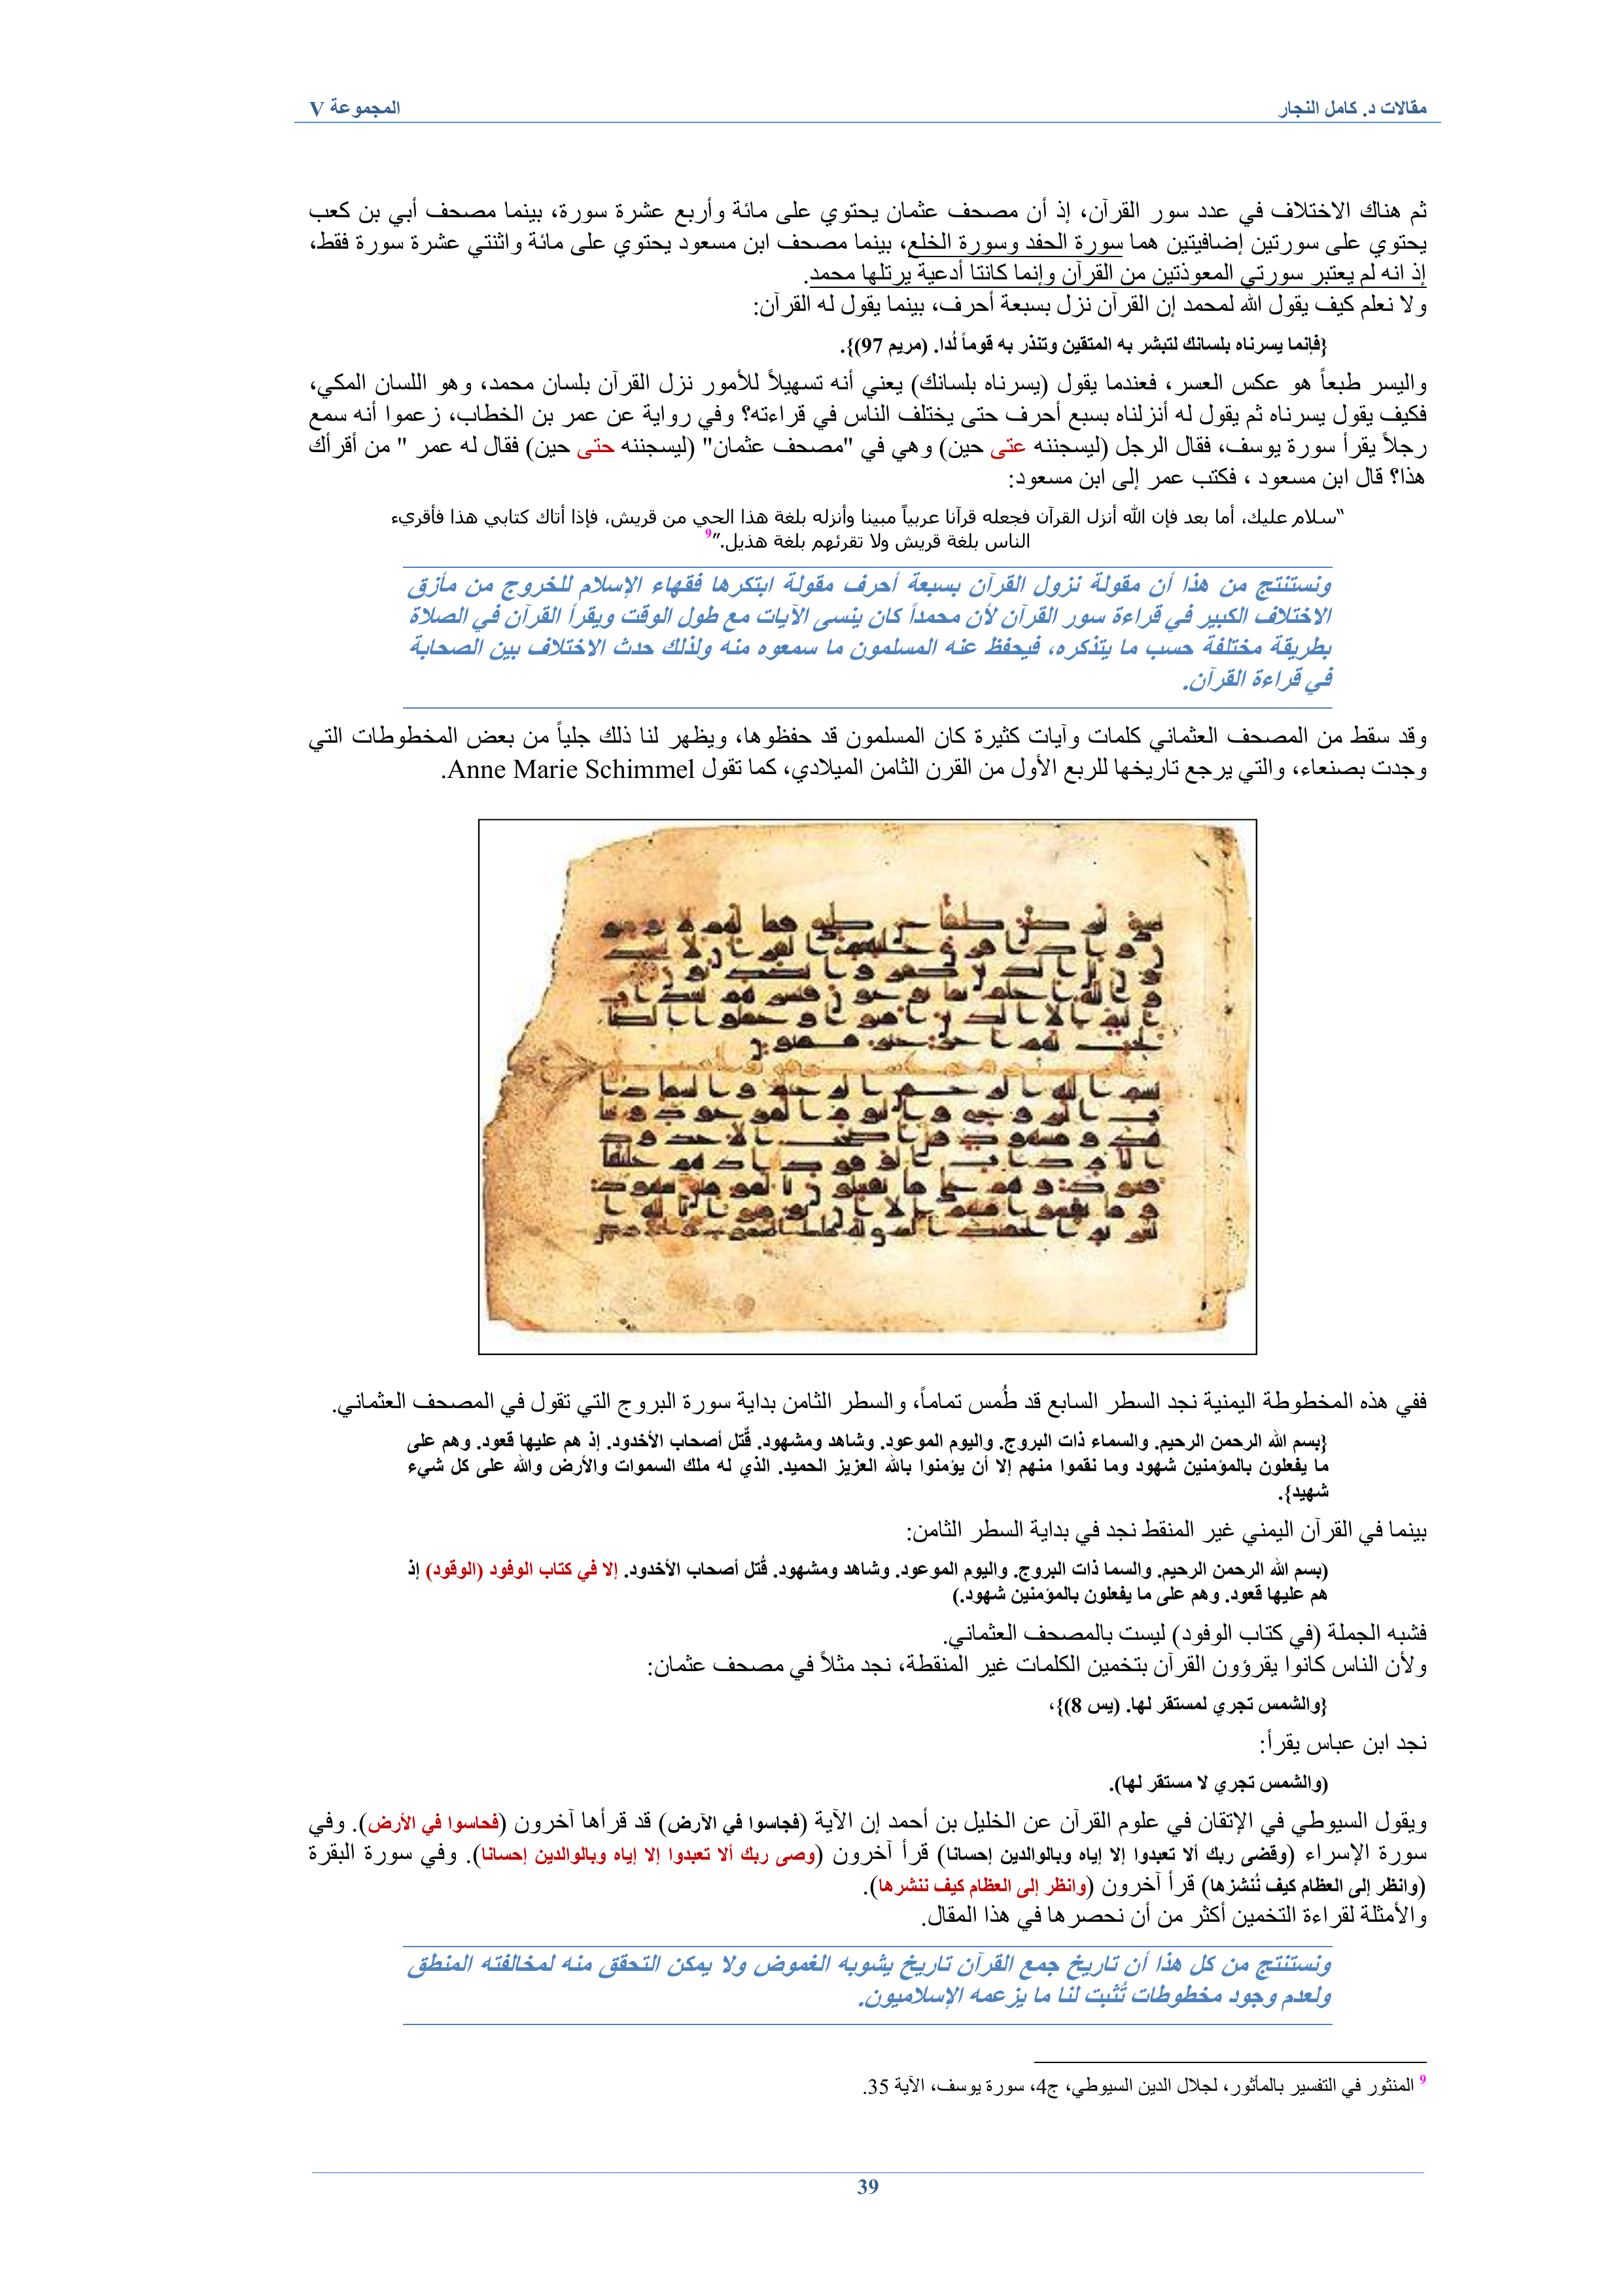 مقالات د. كامل النجار
المجموعة V
ثم هناك الاختلاف في عدد سور القرآن، إذ أن مصحف عثمان يحتوي على مائة وأربع عشرة سورة، بينما مصحف أبي بن كعب
يحتوي على سورتين إضافيتين هما سورة الحفد وسورة الخلع، بينما مصحف ابن مسعود يحتوي على مائة واثنتي عشرة سورة فقط،
إذ انه لم يعتبر سورتي المعوذتين من القرآن وإنما كانتا أدعية يرتلها محمد.
ولا نعلم كيف يقول الله لمحمد إن القرآن نزل بسبعة أحرف، بينما يقول له القرآن:
{فإنما يسرناه بلسانك لتبشر به المتقين وتنذر به قوماً لُدا. (مريم 97)}.
واليسر طبعاً هو عكس العسر، فعندما يقول (يسرناه بلسانك) يعني أنه تسهيلاً للأمور نزل القرآن بلسان محمد، وهو اللسان المكي،
فكيف يقول يسرناه ثم يقول له أنزلناه بسبع أحرف حتى يختلف الناس في قراءته؟ وفي رواية عن عمر بن الخطاب، زعموا أنه سمع
رجلاً يقرأ سورة يوسف، فقال الرجل (ليسجننه عتى حين) وهي في "مصحف عثمان" (ليسجننه حتى حين) فقال له عمر " من أقرأك
هذا؟ قال ابن مسعود ، فكتب عمر إلى ابن مسعود:
"سلام عليك، أما بعد فإن الله أنزل القرآن فجعله قرآنا عربياً مبينا وأنزله بلغة هذا الحي من قريش، فإذا أتاك كتابي هذا فأقريء
الناس بلغة قريش ولا تقرئهم بلغة هذيل."9
ونستنتج من هذا أن مقولة نزول القرآن بسبعة أحرف مقولة ابتكرها فقهاء الإسلام للخروج من مأزق
الاختلاف الكبير في قراءة سور القرآن لأن محمداً كان ينسى الآيات مع طول الوقت ويقرأ القرآن في الصلاة
بطريقة مختلفة حسب ما يتذكره، فيحفظ عنه المسلمون ما سمعوه منه ولذلك حدث الاختلاف بين الصحابة
في قراءة القرآن.
وقد سقط من المصحف العثماني كلمات وآيات كثيرة كان المسلمون قد حفظوها، ويظهر لنا ذلك جلياً من بعض المخطوطات التي
وجدت بصنعاء، والتي يرجع تاريخها للربع الأول من القرن الثامن الميلادي، كما تقول Anne Marie Schimmel.
ففي هذه المخطوطة اليمنية نجد السطر السابع قد طُمس تماماً، والسطر الثامن بداية سورة البروج التي تقول في المصحف العثماني.
{بسم الله الرحمن الرحيم. والسماء ذات البروج. واليوم الموعود. وشاهد ومشهود. قُتل أصحاب الأخدود. إذ هم عليها قعود. وهم على
ما يفعلون بالمؤمنين شهود وما نقموا منهم إلا أن يؤمنوا بالله العزيز الحميد. الذي له ملك السموات والأرض والله على كل شيء
شهيد}.
بينما في القرآن اليمني غير المنقط نجد في بداية السطر الثامن:
(بسم الله الرحمن الرحيم. والسما ذات البروج. واليوم الموعود. وشاهد ومشهود. قُتل أصحاب الأخدود. إلا في كتاب الوفود (الوقود) إذ
هم عليها قعود. وهم على ما يفعلون بالمؤمنين شهود.)
فشبه الجملة (في كتاب الوفود) ليست بالمصحف العثماني.
ولأن الناس كانوا يقرؤون القرآن بتخمين الكلمات غير المنقطة، نجد مثلاً في مصحف عثمان:
{والشمس تجري لمستقر لها. (يس 8)}،
نجد ابن عباس يقرأ:
(والشمس تجري لا مستقر لها).
ويقول السيوطي في الإتقان في علوم القرآن عن الخليل بن أحمد إن الآية (فجاسوا في الآرض) قد قرأها آخرون (فحاسوا في الأرض). وفي
سورة الإسراء (وقضى ربك ألا تعبدوا إلا إياه وبالوالدين إحسانا) قرأ آخرون (وصى ربك ألا تعبدوا إلا إياه وبالوالدين إحسانا). وفي سورة البقرة
(وانظر إلى العظام كيف نُنشزها) قرأ آخرون (وانظر إلى العظام كيف ننشرها).
والأمثلة لقراءة التخمين أكثر من أن نحصرها في هذا المقال.
ونستنتج من كل هذا أن تاريخ جمع القرآن تاريخ يشوبه الغموض ولا يمكن التحقق منه لمخالفته المنطق
ولعدم وجود مخطوطات تُثبت لنا ما يزعمه الإسلاميون.
9 المنثور في التفسير بالمأثور، لجلال الدين السيوطي، ج4، سورة يوسف، الآية 35.
39